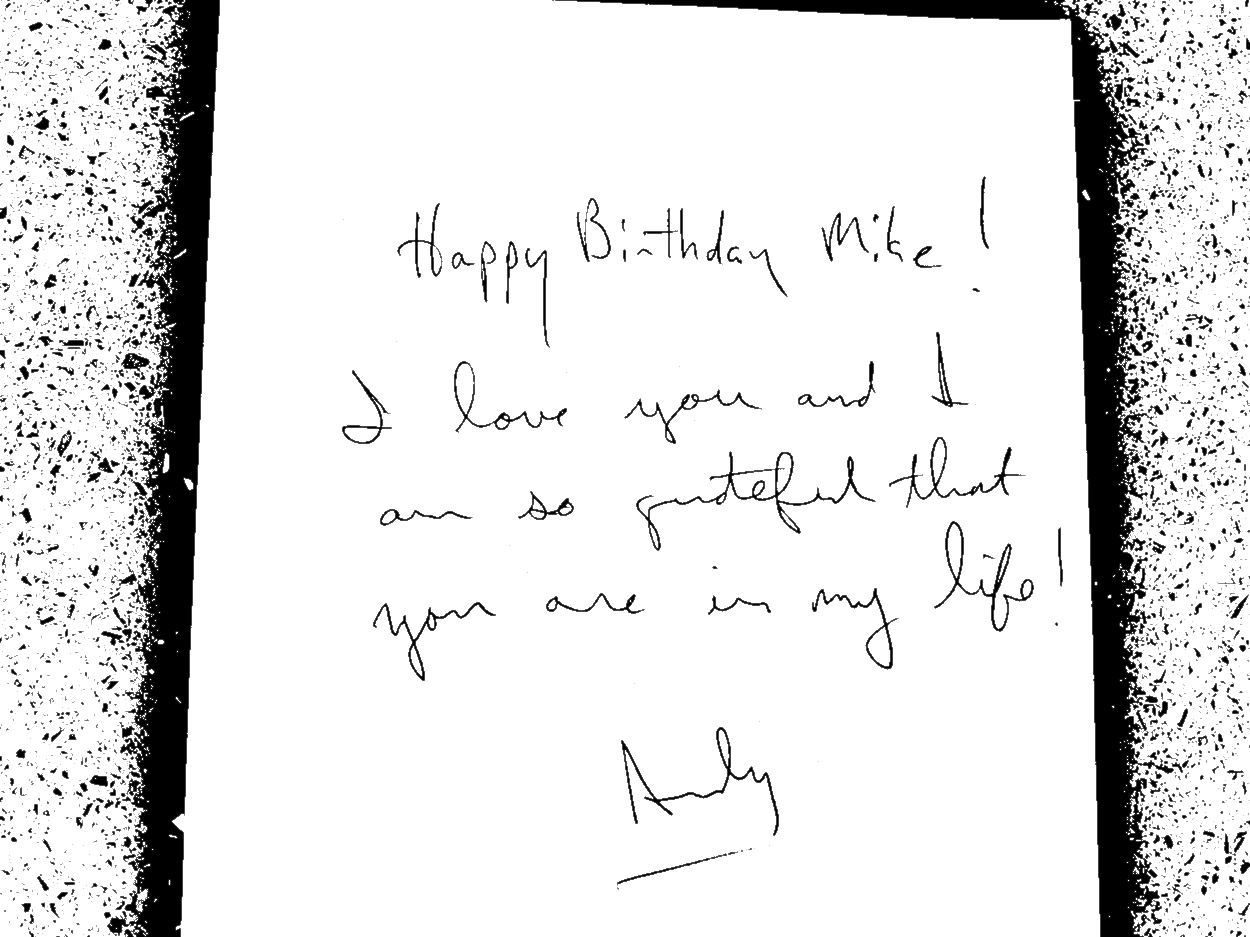 Happy Birthday Mike!
I love you and I
am so grateful that
you are in my life!
Andy